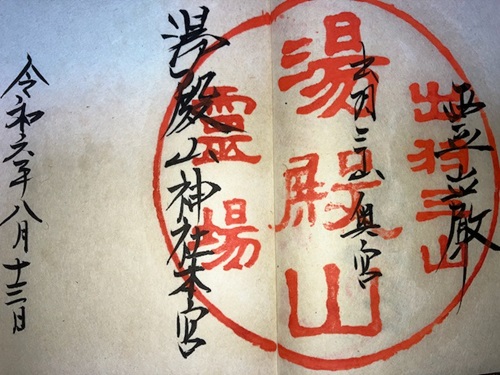 出羽三山奥宮
湯殿山神社本宮
令和六年八月十三日
出羽三山
湯殿山
霊場